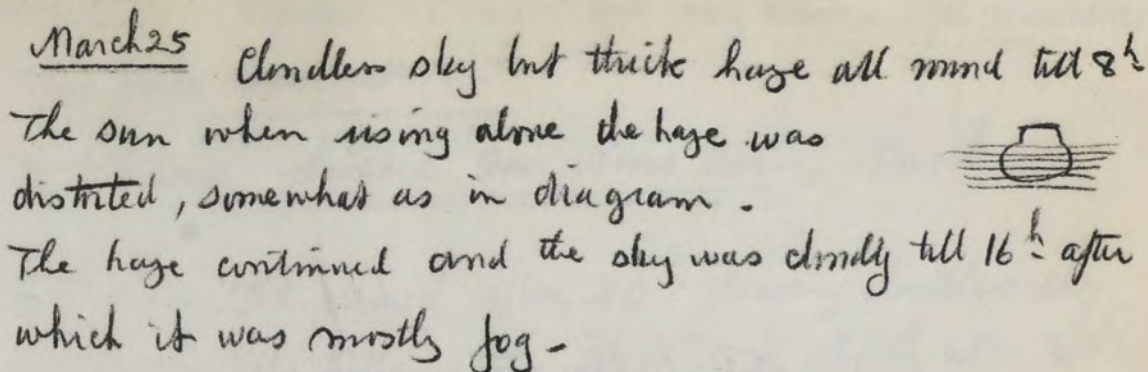 March 25 Cloudless sky but thick haze all round till 8h
The sun when rising above the haze was
distorted, somewhat as in diagram.
The haze continued and the sky was cloudy till 16h after
which it was mostly fog-